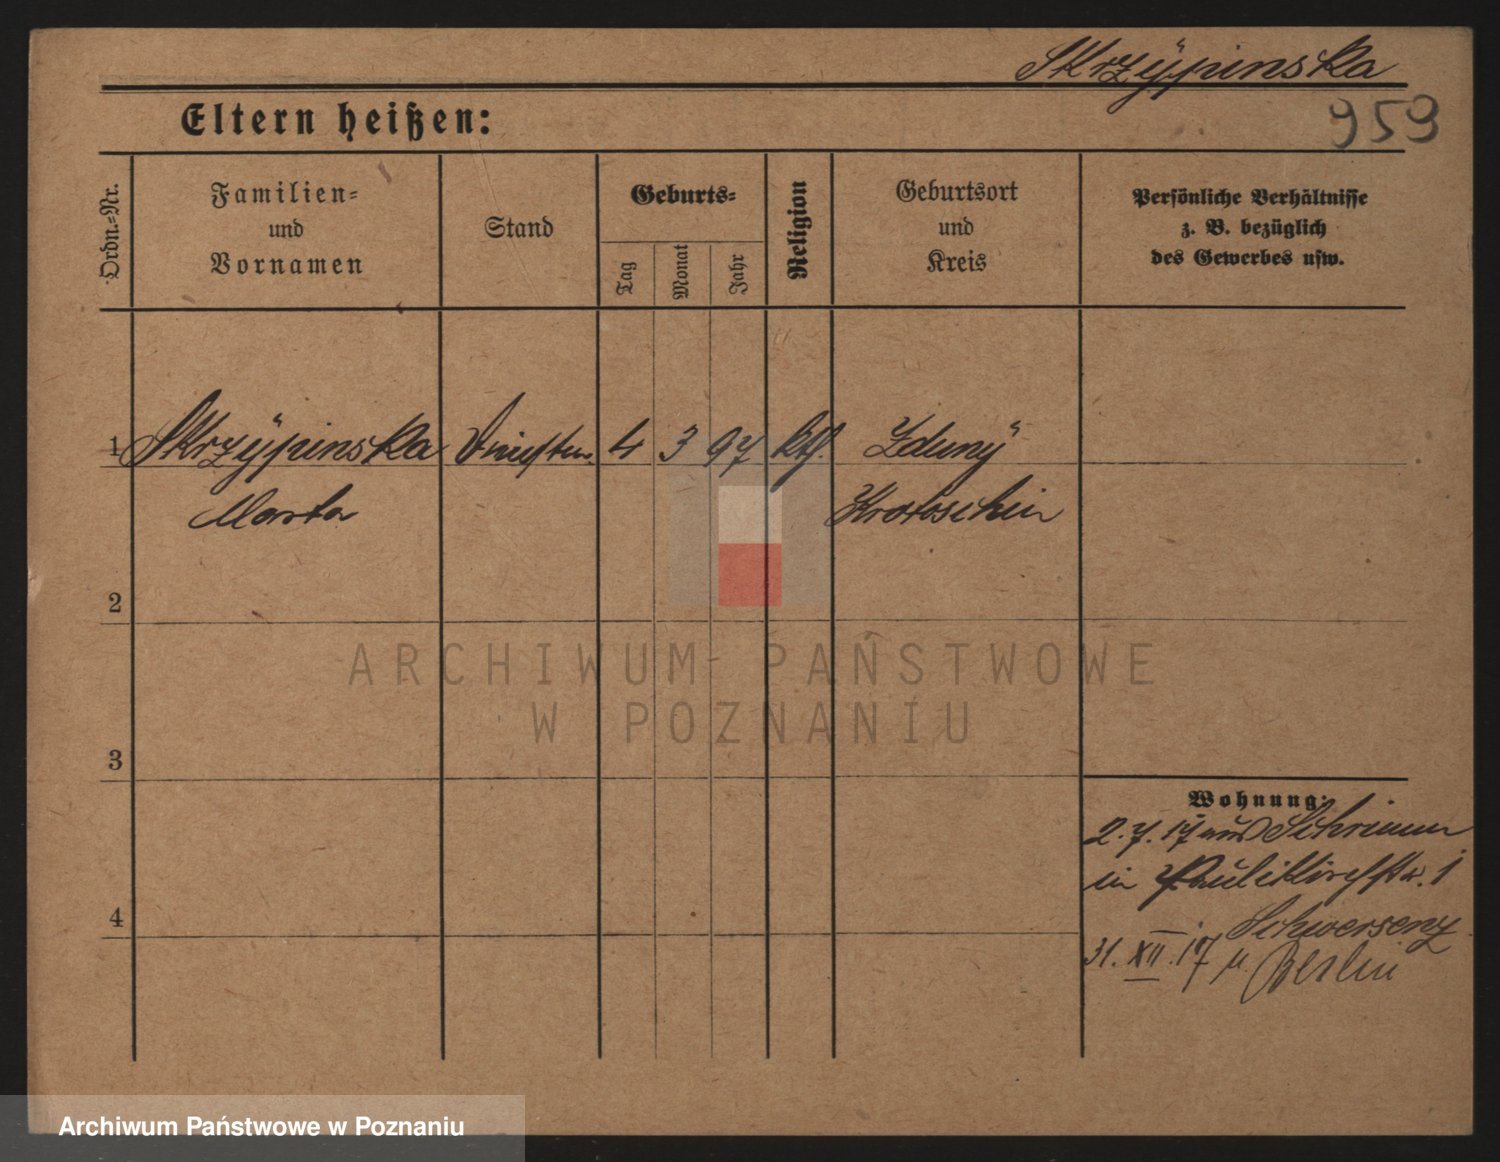 Skrzÿpinska
959
Eltern heißen:
Ordn.=Nr.
Familien=
und
Vornamen
Stand
Geburts=
Tag
Monat
Jahr
Religion
Geburtsort
und
Kreis
Persönliche Verhältnisse
z. B. bezüglich
des Gewerbes usw.
1 Skrzÿpinska 4 3 97 kth. Zdunÿ
Marta Krotoschin
2
3
4
Wohnung:
2.7.17 aus Schrimm
in Paulikirchstr. 1
Schwersenz
31. XII. 17 n. Berlin
ARCHIWUM PAŃSTWOWE
W POZNANIU
Archiwum Państwowe w Poznaniu